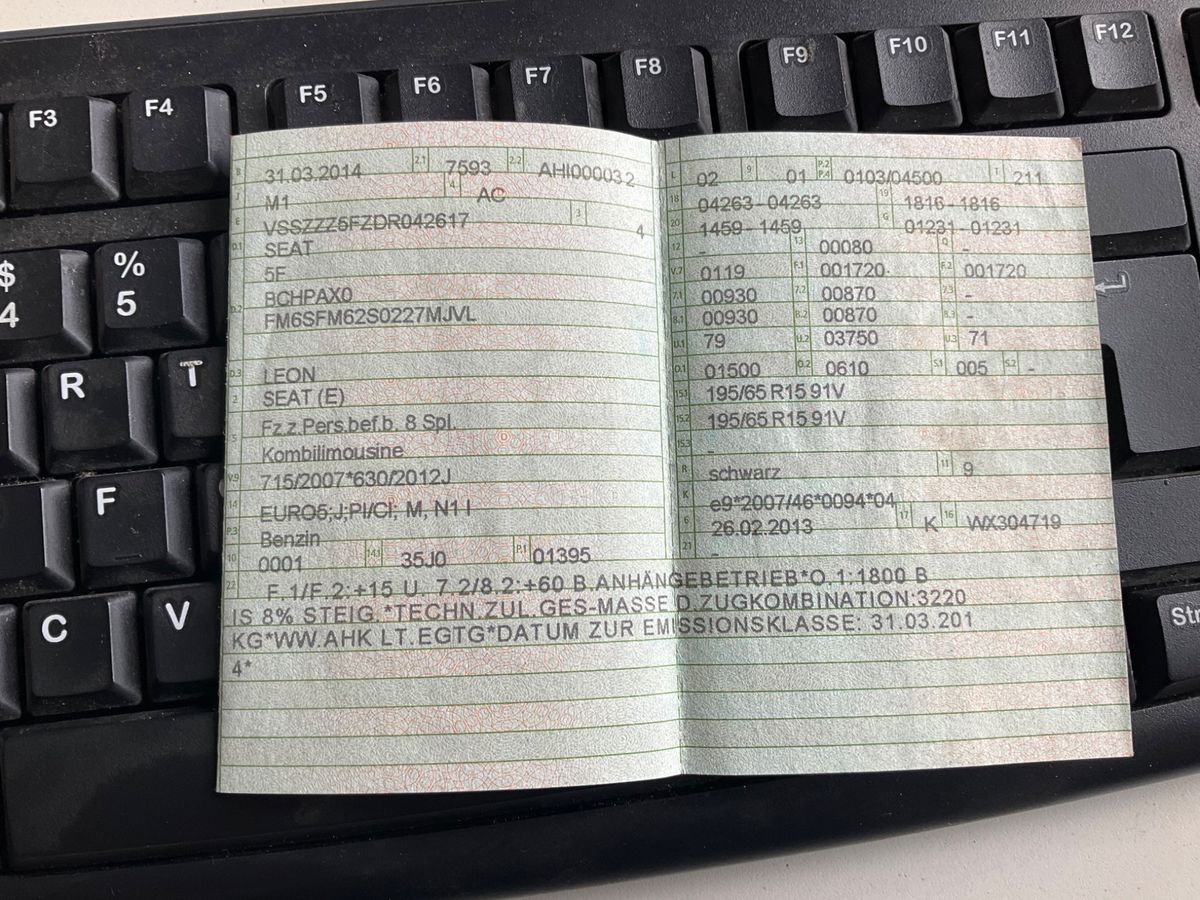 F3 F4 F5 F6 F7 F8 F9 F10 F11 F12
$ 4 % 5
R T
F
C V
B 31.03.2014 2.1 7593 2.2 AHI000032
J M1 4 AC
E VSSZZZ5FZDR042617 3 4
D.1 SEAT
5F
D.2 BCHPAX0
FM6SFM62S0227MJVL
D.3 LEON
2 SEAT (E)
5 Fz.z.Pers.bef.b. 8 Spl.
Kombilimousine
V.9 715/2007*630/2012J
14 EURO5;J;PI/CI; M, N1 I
P.3 Benzin
10 0001 14.1 35J0 P.1 01395
22 F.1/F.2:+15 U. 7.2/8.2:+60 B.ANHÄNGEBETRIEB*O.1:1800 B
IS 8% STEIG.*TECHN.ZUL.GES-MASSE D.ZUGKOMBINATION:3220
KG*WW.AHK LT.EGTG*DATUM ZUR EMISSIONSKLASSE: 31.03.201
4*
L 02 9 01 P.2 P.4 0103/04500 T 211
18 04263 - 04263 19 1816 - 1816
20 1459 - 1459 G 01231 - 01231
12 - 13 00080 Q -
V.7 0119 F.1 001720 F.2 001720
7.1 00930 7.2 00870 7.3 -
8.1 00930 8.2 00870 8.3 -
U.1 79 U.2 03750 U.3 71
O.1 01500 O.2 0610 S.1 005 S.2 -
15.1 195/65 R15 91V
15.2 195/65 R15 91V
15.3 -
R schwarz 11 9
K e9*2007/46*0094*04
6 26.02.2013 17 K 16 WX304719
21 -